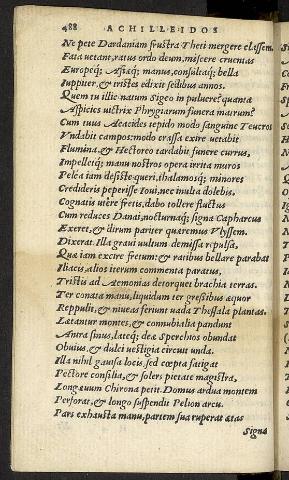 488 ACHILLEIDOS
Ne pete Dardaniam frustra Theti mergere classem.
Fata vetant, ratus ordo deum, miscere cruentas
Europæq; Asiæq; manus, consultaq; bella
Iuppiter, & tristes edixit sedibus annos.
Quem tu illic natum Sigeo in puluere? quanta
Aspicies victrix Phrygiarum funera matrum?
Cum tuus Aeacides tepido modo sanguine Teucros
Vndabit campos: modo crassa exire vetabit
Flumina, & Hectoreo tardabit funere currus,
Impelletq; manu nostros opera irrita muros
Pelea iam desiste queri, thalamosq; minores
Crederis peperisse Ioui, nec inulta dolebis,
Cognatis utere fretis, dabo tollere fluctus
Cum reduces Danai, nocturnaq; signa Caphareus
Exeret, & dirum pariter quæremus Vlyssem.
Dixerat. Illa graui vultum demissa repulsa,
Quæ iam excire fretum: & ratibus bellare parabat
Iliacis, alios iterum commenta paratus,
Tristis ad Aemonias detorquet brachia terras.
Ter conata manu, liquidum ter gressibus æquor
Reppulit, & niueas feriunt vada Thessala plantas.
Lætantur montes, & connubialia pandunt
Antra sinus, lateq; deæ Sperchios obundat
Obuius, & dulci vestigia circuit unda.
Illa nihil gauisa locis, sed cœpta fatigat
Pectore consilia, & solers pietate magistra,
Longæuum Chirona petit. Domus ardua montem
Perforat, & longo suspendit Pelion arcu.
Pars exhausta manu, partem sua ruperat ætas
Signa